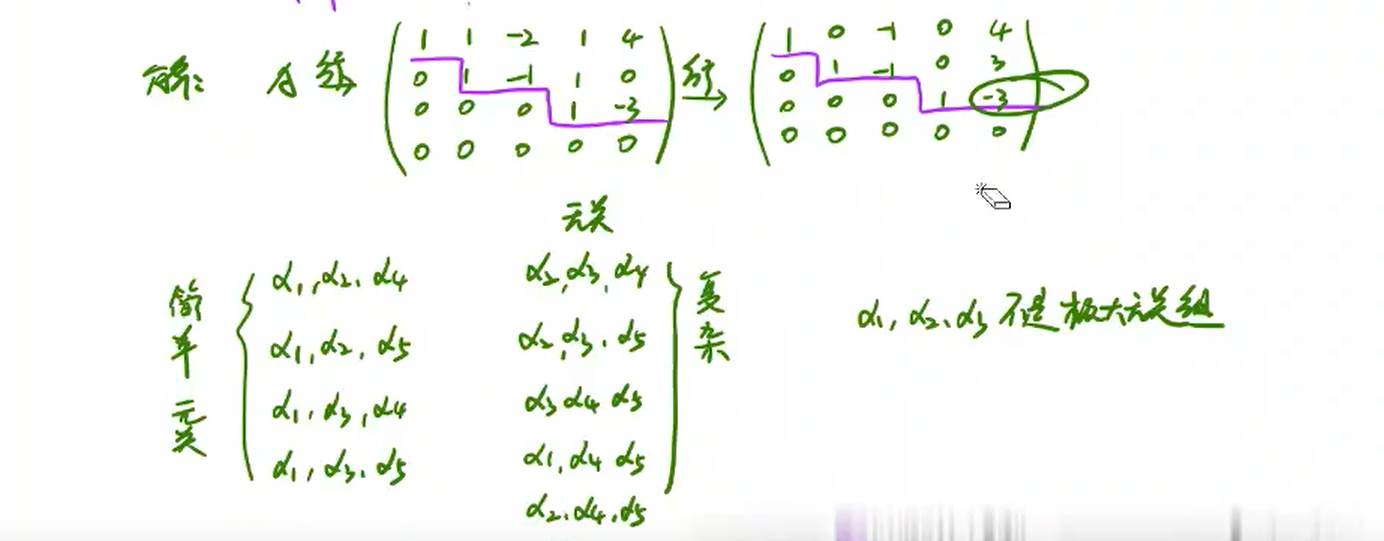 解: A 经
1 1 -2 1 4
0 1 -1 1 0
0 0 0 1 -3
0 0 0 0 0
行
1 0 -1 0 4
0 1 -1 0 3
0 0 0 1 -3
0 0 0 0 0
无关
简单无关
α1, α2. α4
α1, α2, α5
α1, α3, α4
α1, α3. α5
α2, α3, α4
α2, α3. α5
α3 α4 α5
α1, α4 α5
α2. α4. α5
复杂
α1, α2, α3 不是极大无关组